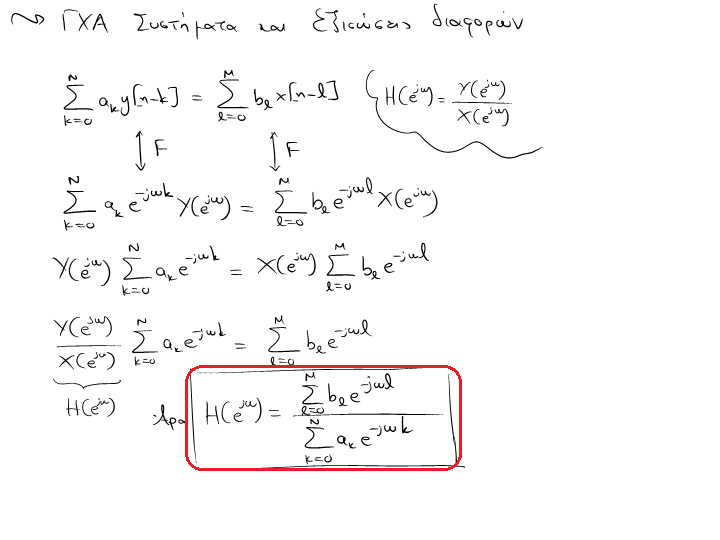 ~> ΓΧΑ Συστήματα και Εξισώσεις διαφορών
\sum_{k=0}^{N} a_k y[n-k] = \sum_{l=0}^{M} b_l x[n-l]
H(e^{jω}) = \frac{Y(e^{jω})}{X(e^{jω})}
↕ F ↕ F
\sum_{k=0}^{N} a_k e^{-jωk} Y(e^{jω}) = \sum_{l=0}^{M} b_l e^{-jωl} X(e^{jω})
Y(e^{jω}) \sum_{k=0}^{N} a_k e^{-jωk} = X(e^{jω}) \sum_{l=0}^{M} b_l e^{-jωl}
\frac{Y(e^{jω})}{X(e^{jω})} \sum_{k=0}^{N} a_k e^{-jωk} = \sum_{l=0}^{M} b_l e^{-jωl}
H(e^{jω})
Άρα H(e^{jω}) = \frac{\sum_{l=0}^{M} b_l e^{-jωl}}{\sum_{k=0}^{N} a_k e^{-jωk}}